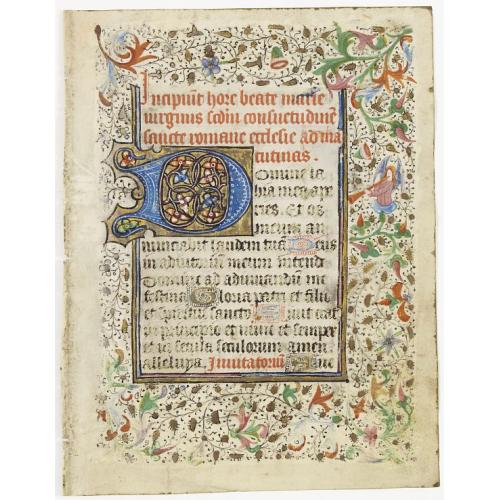 Incipiūt hore beate marie
virginis scdm consuetudinē
sancte romane ecclesie ad ma
tutinas.
Domine la
bia mea ape
ries. Et os
meum an
nunciabit laudem tuā Deus
in adiutoriū meum intende
Domine ad adiuvandū me
festina Gloria patri et filio
et spiritui sancto Sicut erat
in principio et nunc et semper
et in secula seculorum amen
alleluya. Invitatoriū Ave